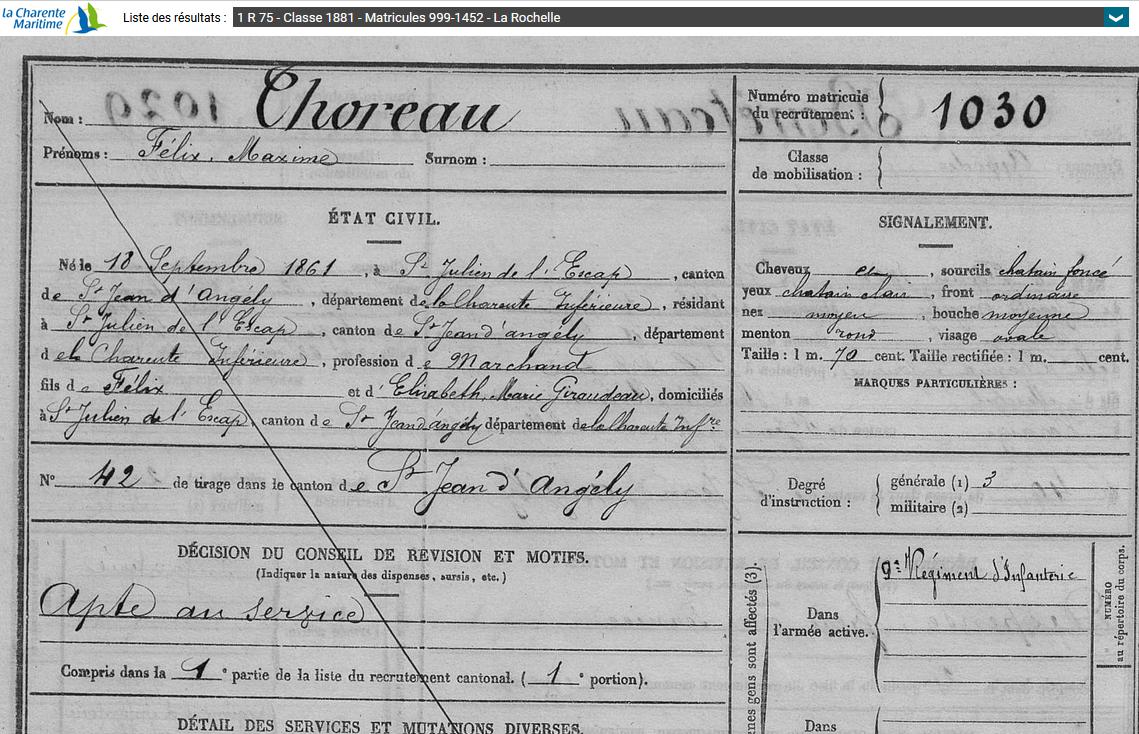 la Charente
Maritime
Liste des résultats : 1 R 75 - Classe 1881 - Matricules 999-1452 - La Rochelle
Nom : Choreau
Prénoms : Félix, Maxime Surnom :
Numéro matricule
du recrutement : 1030
Classe
de mobilisation :
ÉTAT CIVIL.
Né le 18 Septembre 1861, à St Julien de l'Escap, canton
de St Jean d'Angély, département de la Charente Inférieure, résidant
à St Julien de l'Escap, canton de St Jean d'angély, département
de la Charente Inférieure, profession de Marchand
fils de Félix et d'Elisabeth, Marie Giraudeau, domiciliés
à St Julien de l'Escap, canton de St Jean d'angély département de la Charente Infre
SIGNALEMENT.
Cheveux et, sourcils chatain foncé
yeux chatain clair, front ordinaire
nez moyen, bouche moyenne
menton rond, visage ovale
Taille : 1 m. 70 cent. Taille rectifiée : 1 m. cent.
MARQUES PARTICULIÈRES :
N° 42 de tirage dans le canton de St Jean d'Angély
Degré
d'instruction :
générale (1) 3
militaire (2)
DÉCISION DU CONSEIL DE RÉVISION ET MOTIFS.
(Indiquer la nature des dispenses, sursis, etc.)
Apte au service
Compris dans la 1e partie de la liste du recrutement cantonal. (1e portion).
DÉTAIL DES SERVICES ET MUTATIONS DIVERSES.
gens sont affectés (3).
Dans
l'armée active.
9e Régiment d'Infanterie
NUMÉRO
au répertoire du corps.
Dans